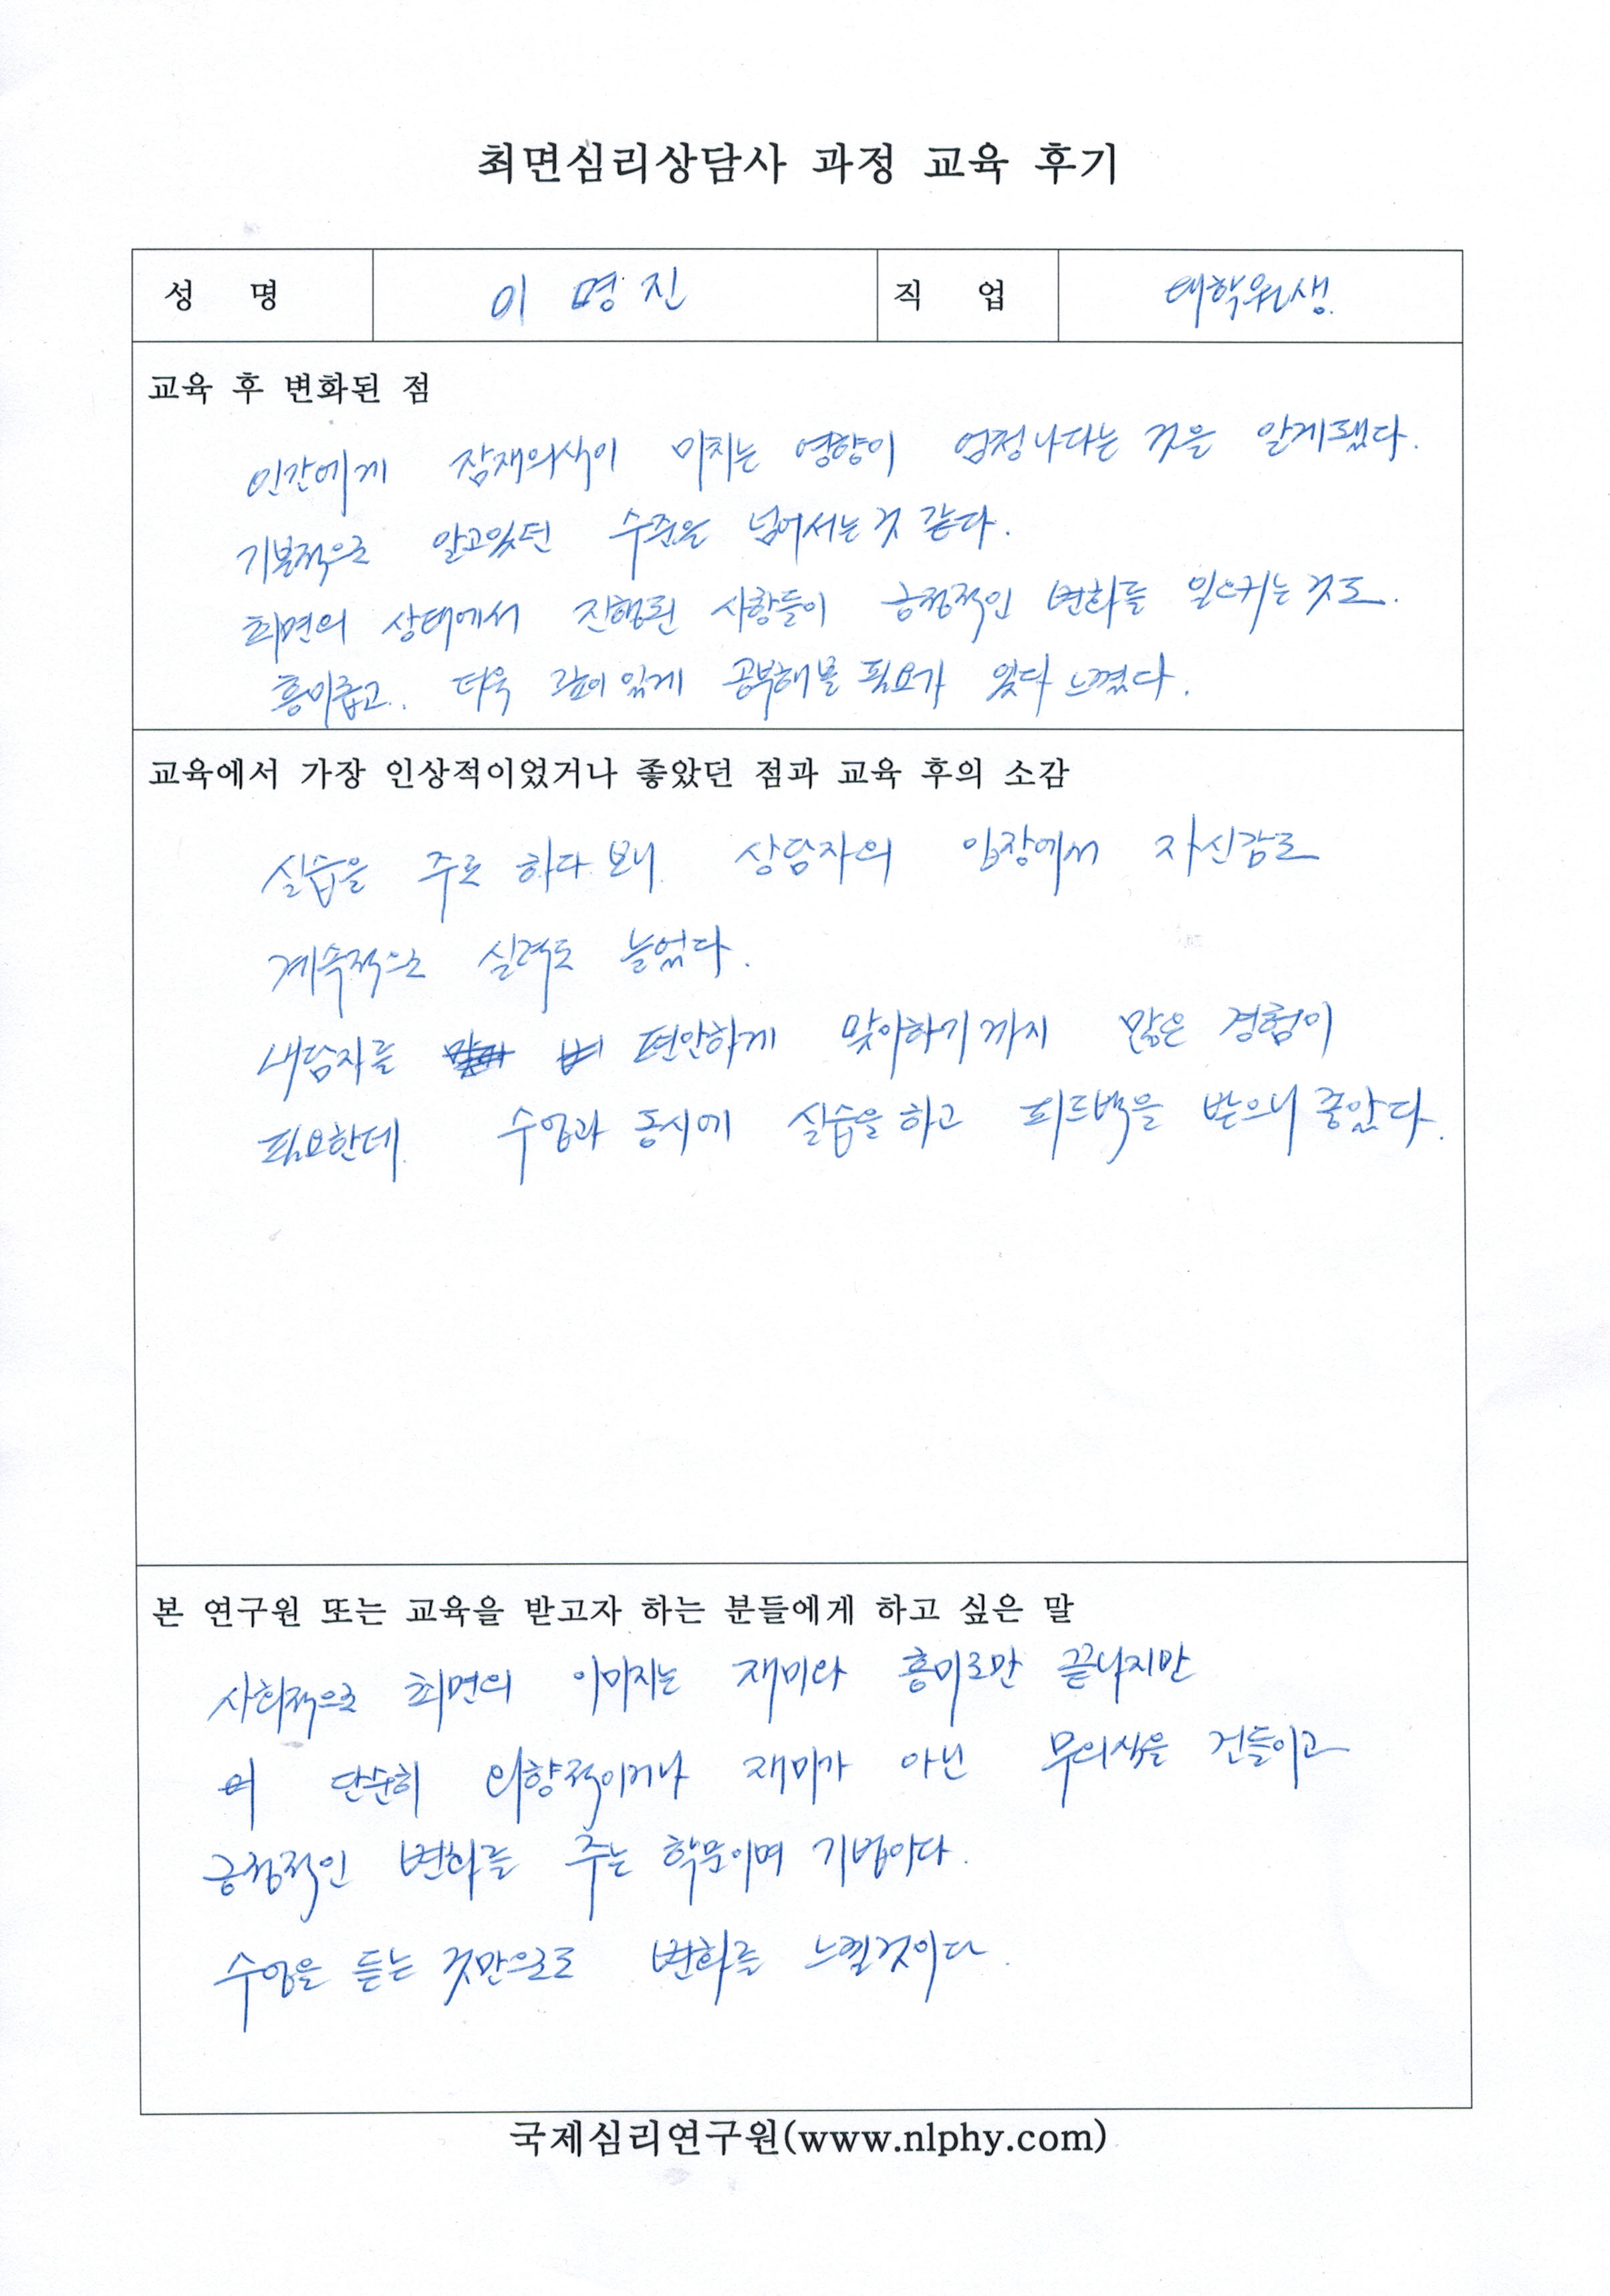 최면심리상담사 과정 교육 후기
성 명 이 명 진 직 업 대학원생.
교육 후 변화된 점
인간에게 잠재의식이 미치는 영향이 엄청나다는 것을 알게됐다.
기본적으로 알고있던 수준을 넘어서는것 같다.
최면의 상태에서 진행된 사항들이 긍정적인 변화를 일으키는것도.
흥미롭고. 더욱 깊이있게 공부해볼 필요가 있다 느꼈다.
교육에서 가장 인상적이었거나 좋았던 점과 교육 후의 소감
실습을 주로 하다 보니 상담자의 입장에서 자신감도
계속적으로 실력도 늘었다.
내담자를 편안하게 맞아하기까지 많은 경험이
필요한데. 수업과 동시에 실습을 하고 피드백을 받으니 좋았다.
본 연구원 또는 교육을 받고자 하는 분들에게 하고 싶은 말
사회적으로 최면의 이미지는 재미와 흥미로만 끝나지만
단순히 의향적이거나 재미가 아닌 무의식을 건들이고
긍정적인 변화를 주는 학문이며 기법이다.
수업을 듣는 것만으로도 변화를 느낄것이다.
국제심리연구원(www.nlphy.com)